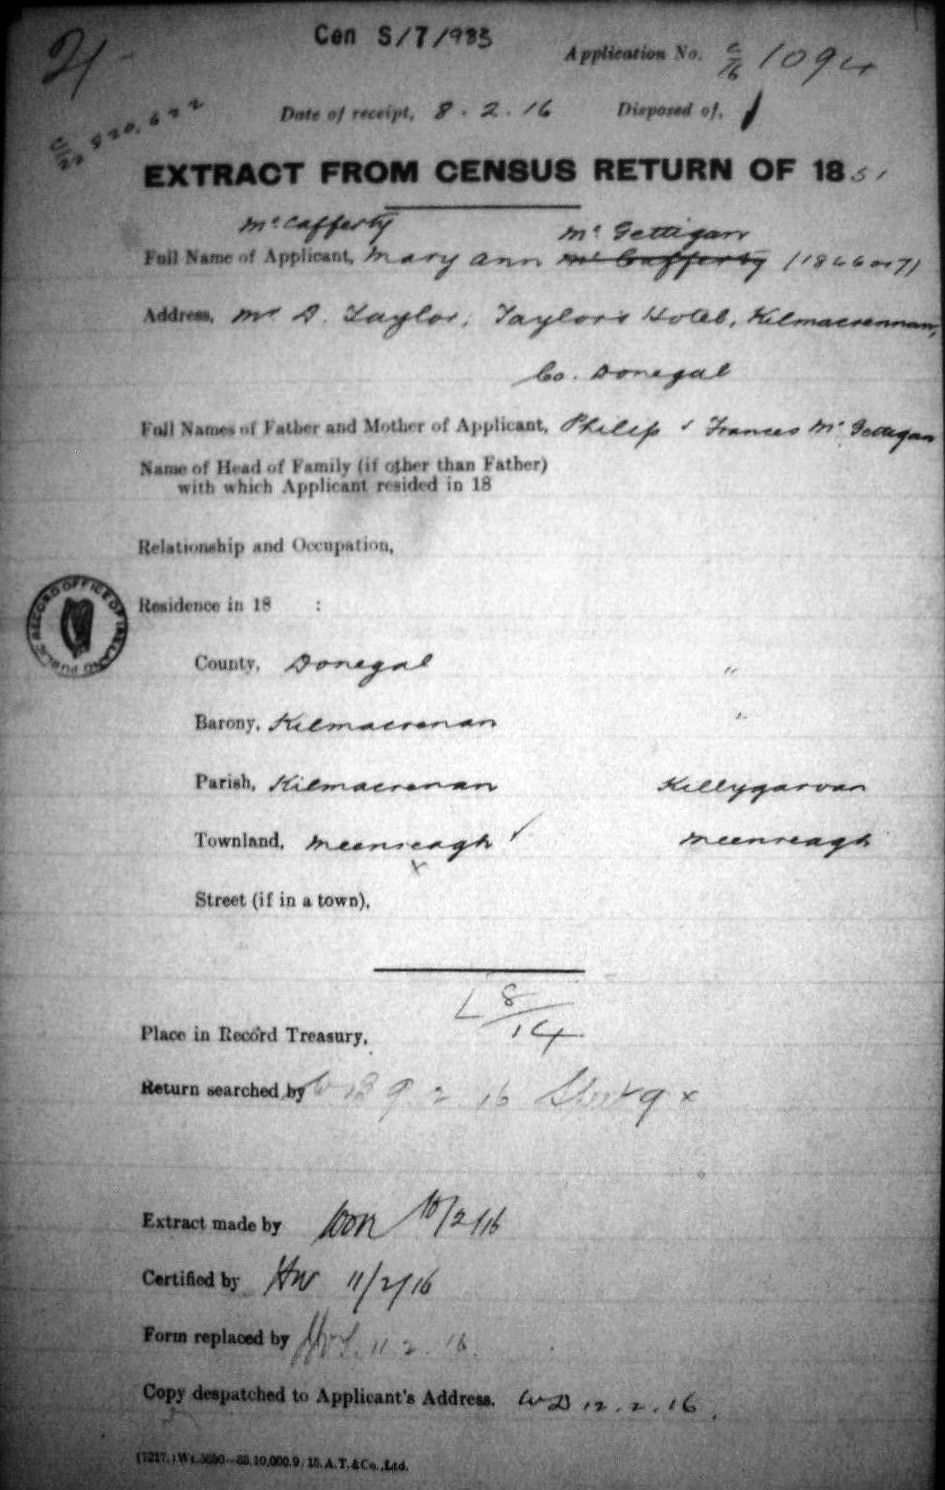 21
Cen S/7/933
Application No. C/16 1094
Date of receipt, 8.2.16 Disposed of,
EXTRACT FROM CENSUS RETURN OF 1851
McCafferty McGettigan
Full Name of Applicant, Mary Ann McCafferty (1846 or 7)
Address, Mr D. Taylor, Taylor's Hotel, Kilmacrennan,
Co. Donegal
Full Names of Father and Mother of Applicant, Philip & Frances McGettigan
Name of Head of Family (if other than Father)
with which Applicant resided in 18
Relationship and Occupation,
PUBLIC RECORD OFFICE OF IRELAND
Residence in 18 :
County, Donegal "
Barony, Kilmacrenan "
Parish, Kilmacrenan Killygarvan
Townland, Meenreagh ✓ Meenreagh
x
Street (if in a town),
L 8/14
Place in Record Treasury,
Return searched by 9 2 16
Extract made by 10/2/16
Certified by HW 11/2/16
Form replaced by 11.2.16.
Copy despatched to Applicant's Address. WD 12.2.16.
(7217.) Wt. 10,000.9/15. A.T.&Co.,Ltd.